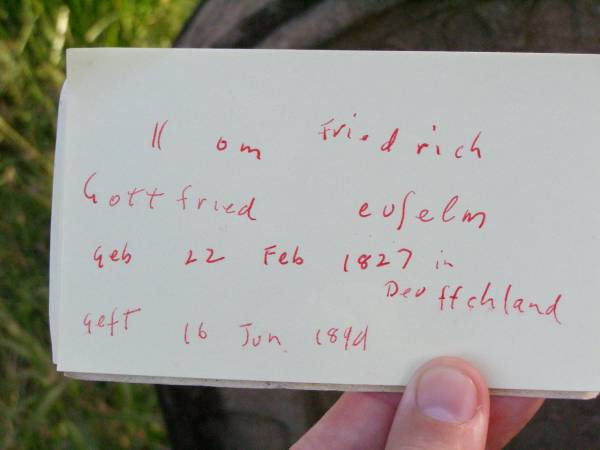 11 om Friedrich
Gottfried euselm
geb 22 Feb 1827 in
Deuffchland
geft 16 Jun 1891